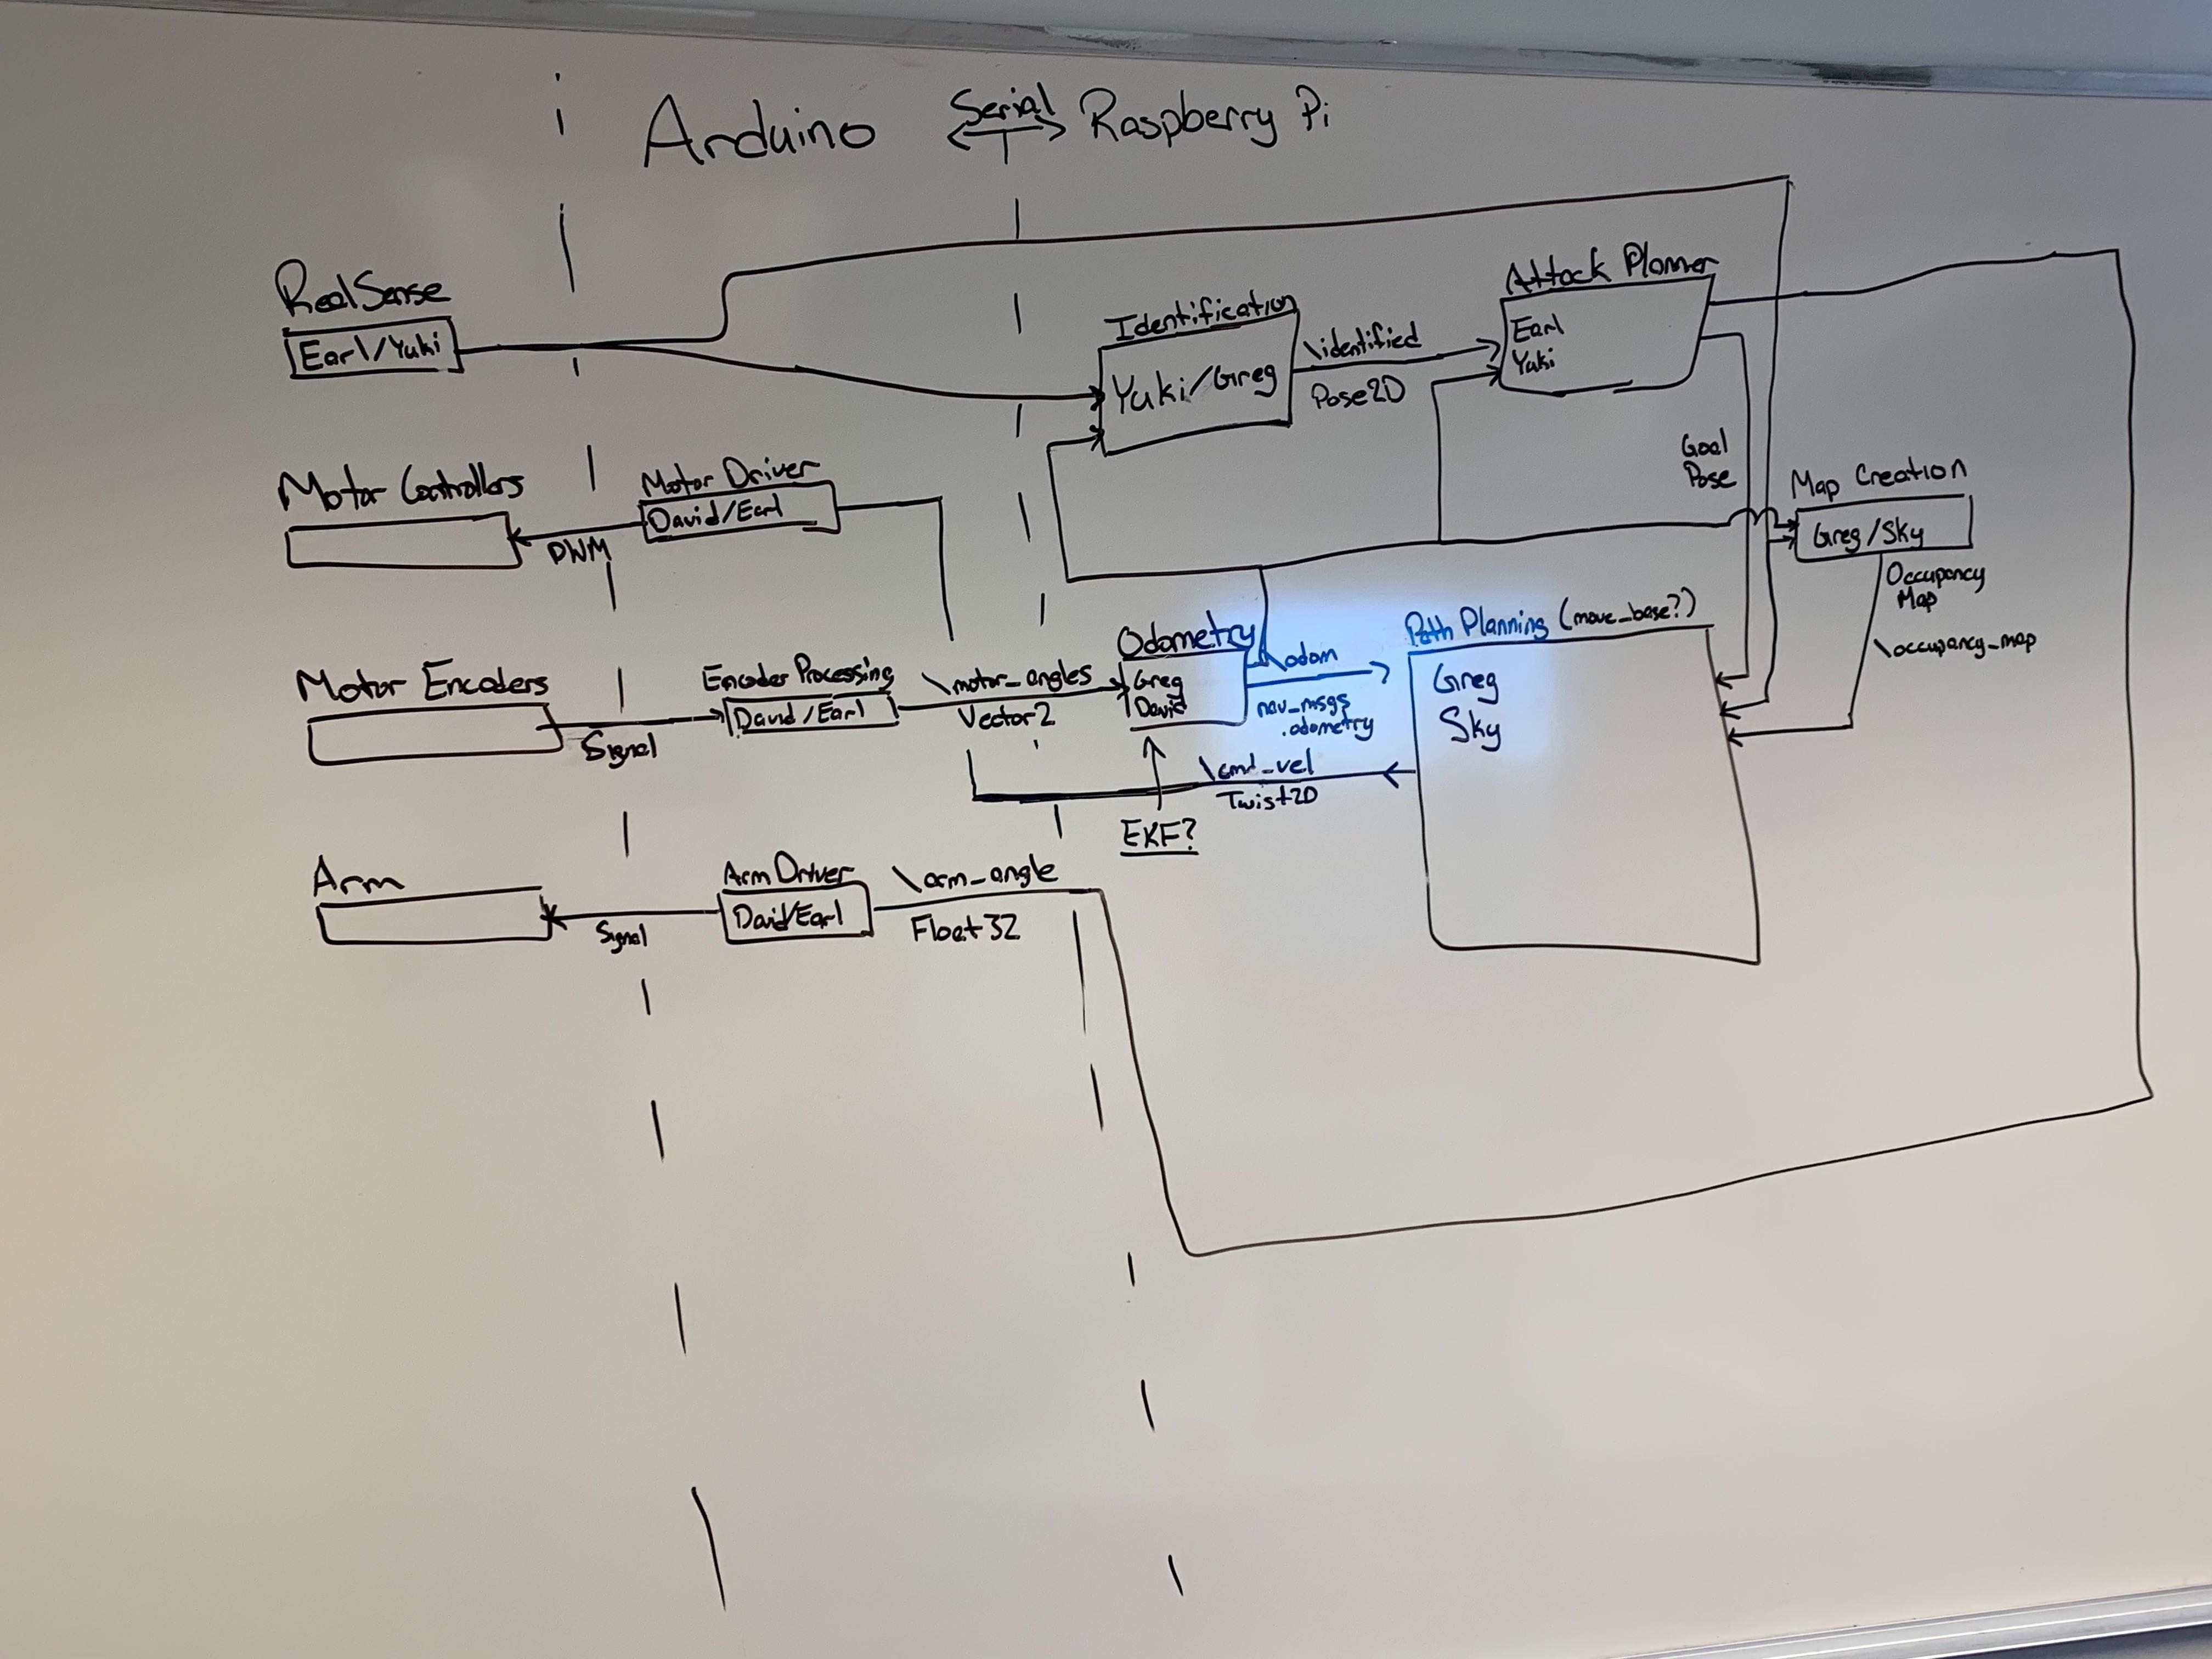 Arduino
Serial
Raspberry Pi
RealSense
Earl/Yuki
Identification
Yuki/Greg
\identified
Pose2D
Attack Planner
Earl
Yuki
Goal
Pose
Map Creation
Greg/Sky
Occupancy
Map
\occupancy_map
Motor Controllers
PWM
Motor Driver
David/Earl
Motor Encoders
Signal
Encoder Processing
David/Earl
\motor_angles
Vector2
Odometry
Greg
David
\odom
nav_msgs
.odometry
Path Planning (move_base?)
Greg
Sky
\cmd_vel
Twist2D
EKF?
Arm
Signal
Arm Driver
David/Earl
\arm_angle
Float32